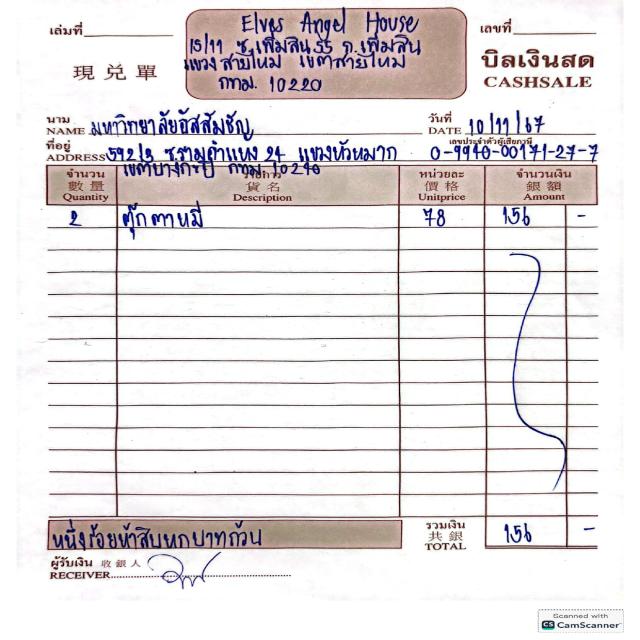 เล่มที่
Elves Angel House
15/11 ซ.เพิ่มสิน 55 ถ.เพิ่มสิน
แขวงสายไหม เขตสายไหม
กทม. 10220
เลขที่
現兌單
บิลเงินสด
CASHSALE
นาม
NAME มหาวิทยาลัยอัสสัมชัญ
วันที่
DATE 10/11/67
ที่อยู่
ADDRESS 592/3 ซ.รามคำแหง 24 แขวงหัวหมาก
เขตบางกะปิ กทม 10240
เลขประจำตัวผู้เสียภาษี
0-9940-00171-27-7
จำนวน 數量 Quantity
รายการ 貨名 Description
หน่วยละ 價格 Unitprice
จำนวนเงิน 銀額 Amount
2 ตุ๊กตาหมี 78 156 -
หนึ่งร้อยห้าสิบหกบาทถ้วน
รวมเงิน 共銀 TOTAL 156 -
ผู้รับเงิน 收銀人
RECEIVER
Scanned with
CS CamScanner